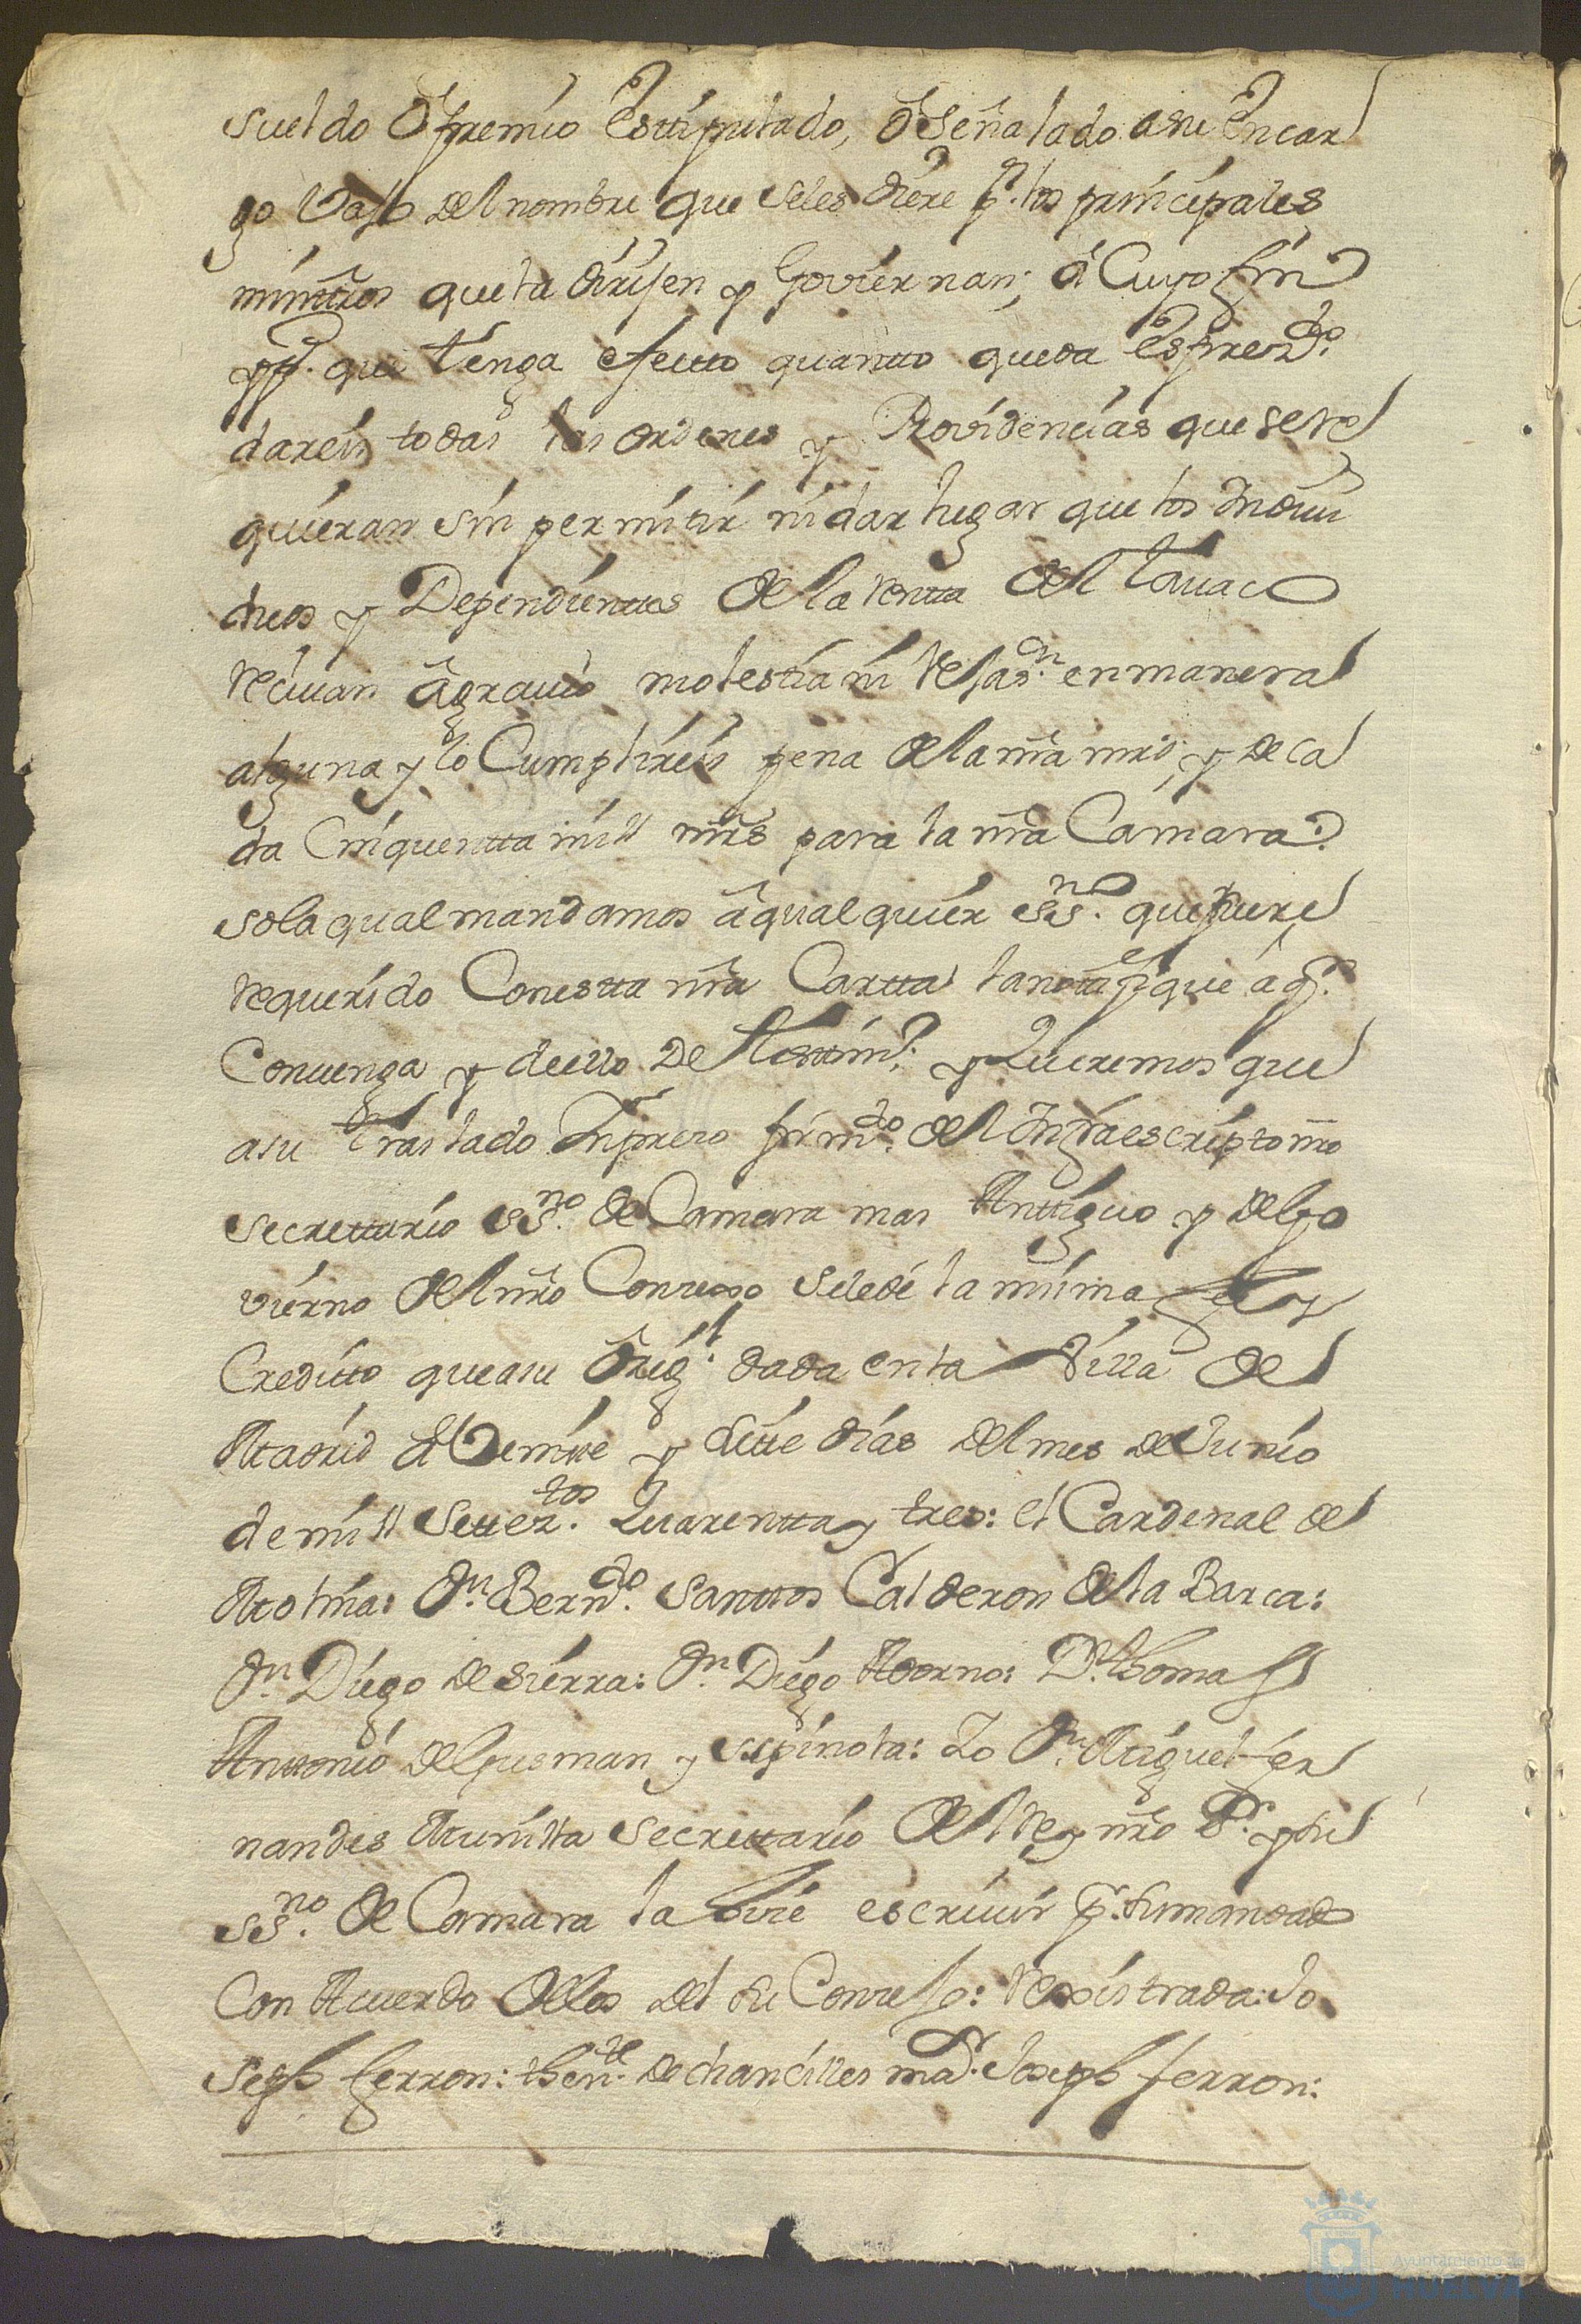 sueldo ô premio Estipulado, ô Señalado a su Encar
go Vajo del nombre que seles diere pr. los principales
minitros que la dirijen y Goviernan; â Cuyo fin
y pa. que tenga efectto quantto queda Espresado.
dareis todas las ordenes y Providencias que se re
quieran sin permitir ni dar lugar que los Indivi
duos y Dependienttes de la rentta del tavaco
recivan âgravio molestia ni Vejasn. en manera
alguna y lo Cumplireis pena de la nrã mrd, y de ca
da Cinquentta mill mrs para la nrã Camara.
so la qual mandamos â qual quier ssno. que fuere
requerido Con estta nrã Cartta la notifiqe que â qn.
Convenga y de ello de testtimo. y Queremos que
a su traslado Impreso firmdo. del Infraescripto nro
Secrettario ssno. de Camara mas Anttiguo y del go
vierno del nrõ Consejo se le dé la misma fee y
Creditto que a su ôrigl. dada en la Villa de
Madrid â Veintte y siette dias del mes de Junio
de mill Setteztos. Quarentta y tres: el Cardenal de
Molina: Dn. Berndo. Santtos Calderon de la Barca:
Dn. Diego de Sierra: Dn. Diego Adorno: Dn. thomas
Anttonio de Gusman y sspinola: Yo Dn. Miguel fer
nandes Munilla Secrettario del Rey nrõ Sr. y su
ssno. de Camara la hize escrivir pr. su mandado
Con Acuerdo de los del su Consejo: Rexistrada: Jo
seph ferron: thente. de chanciller mar. Joseph ferron:
Ayuntamiento de
HUELVA